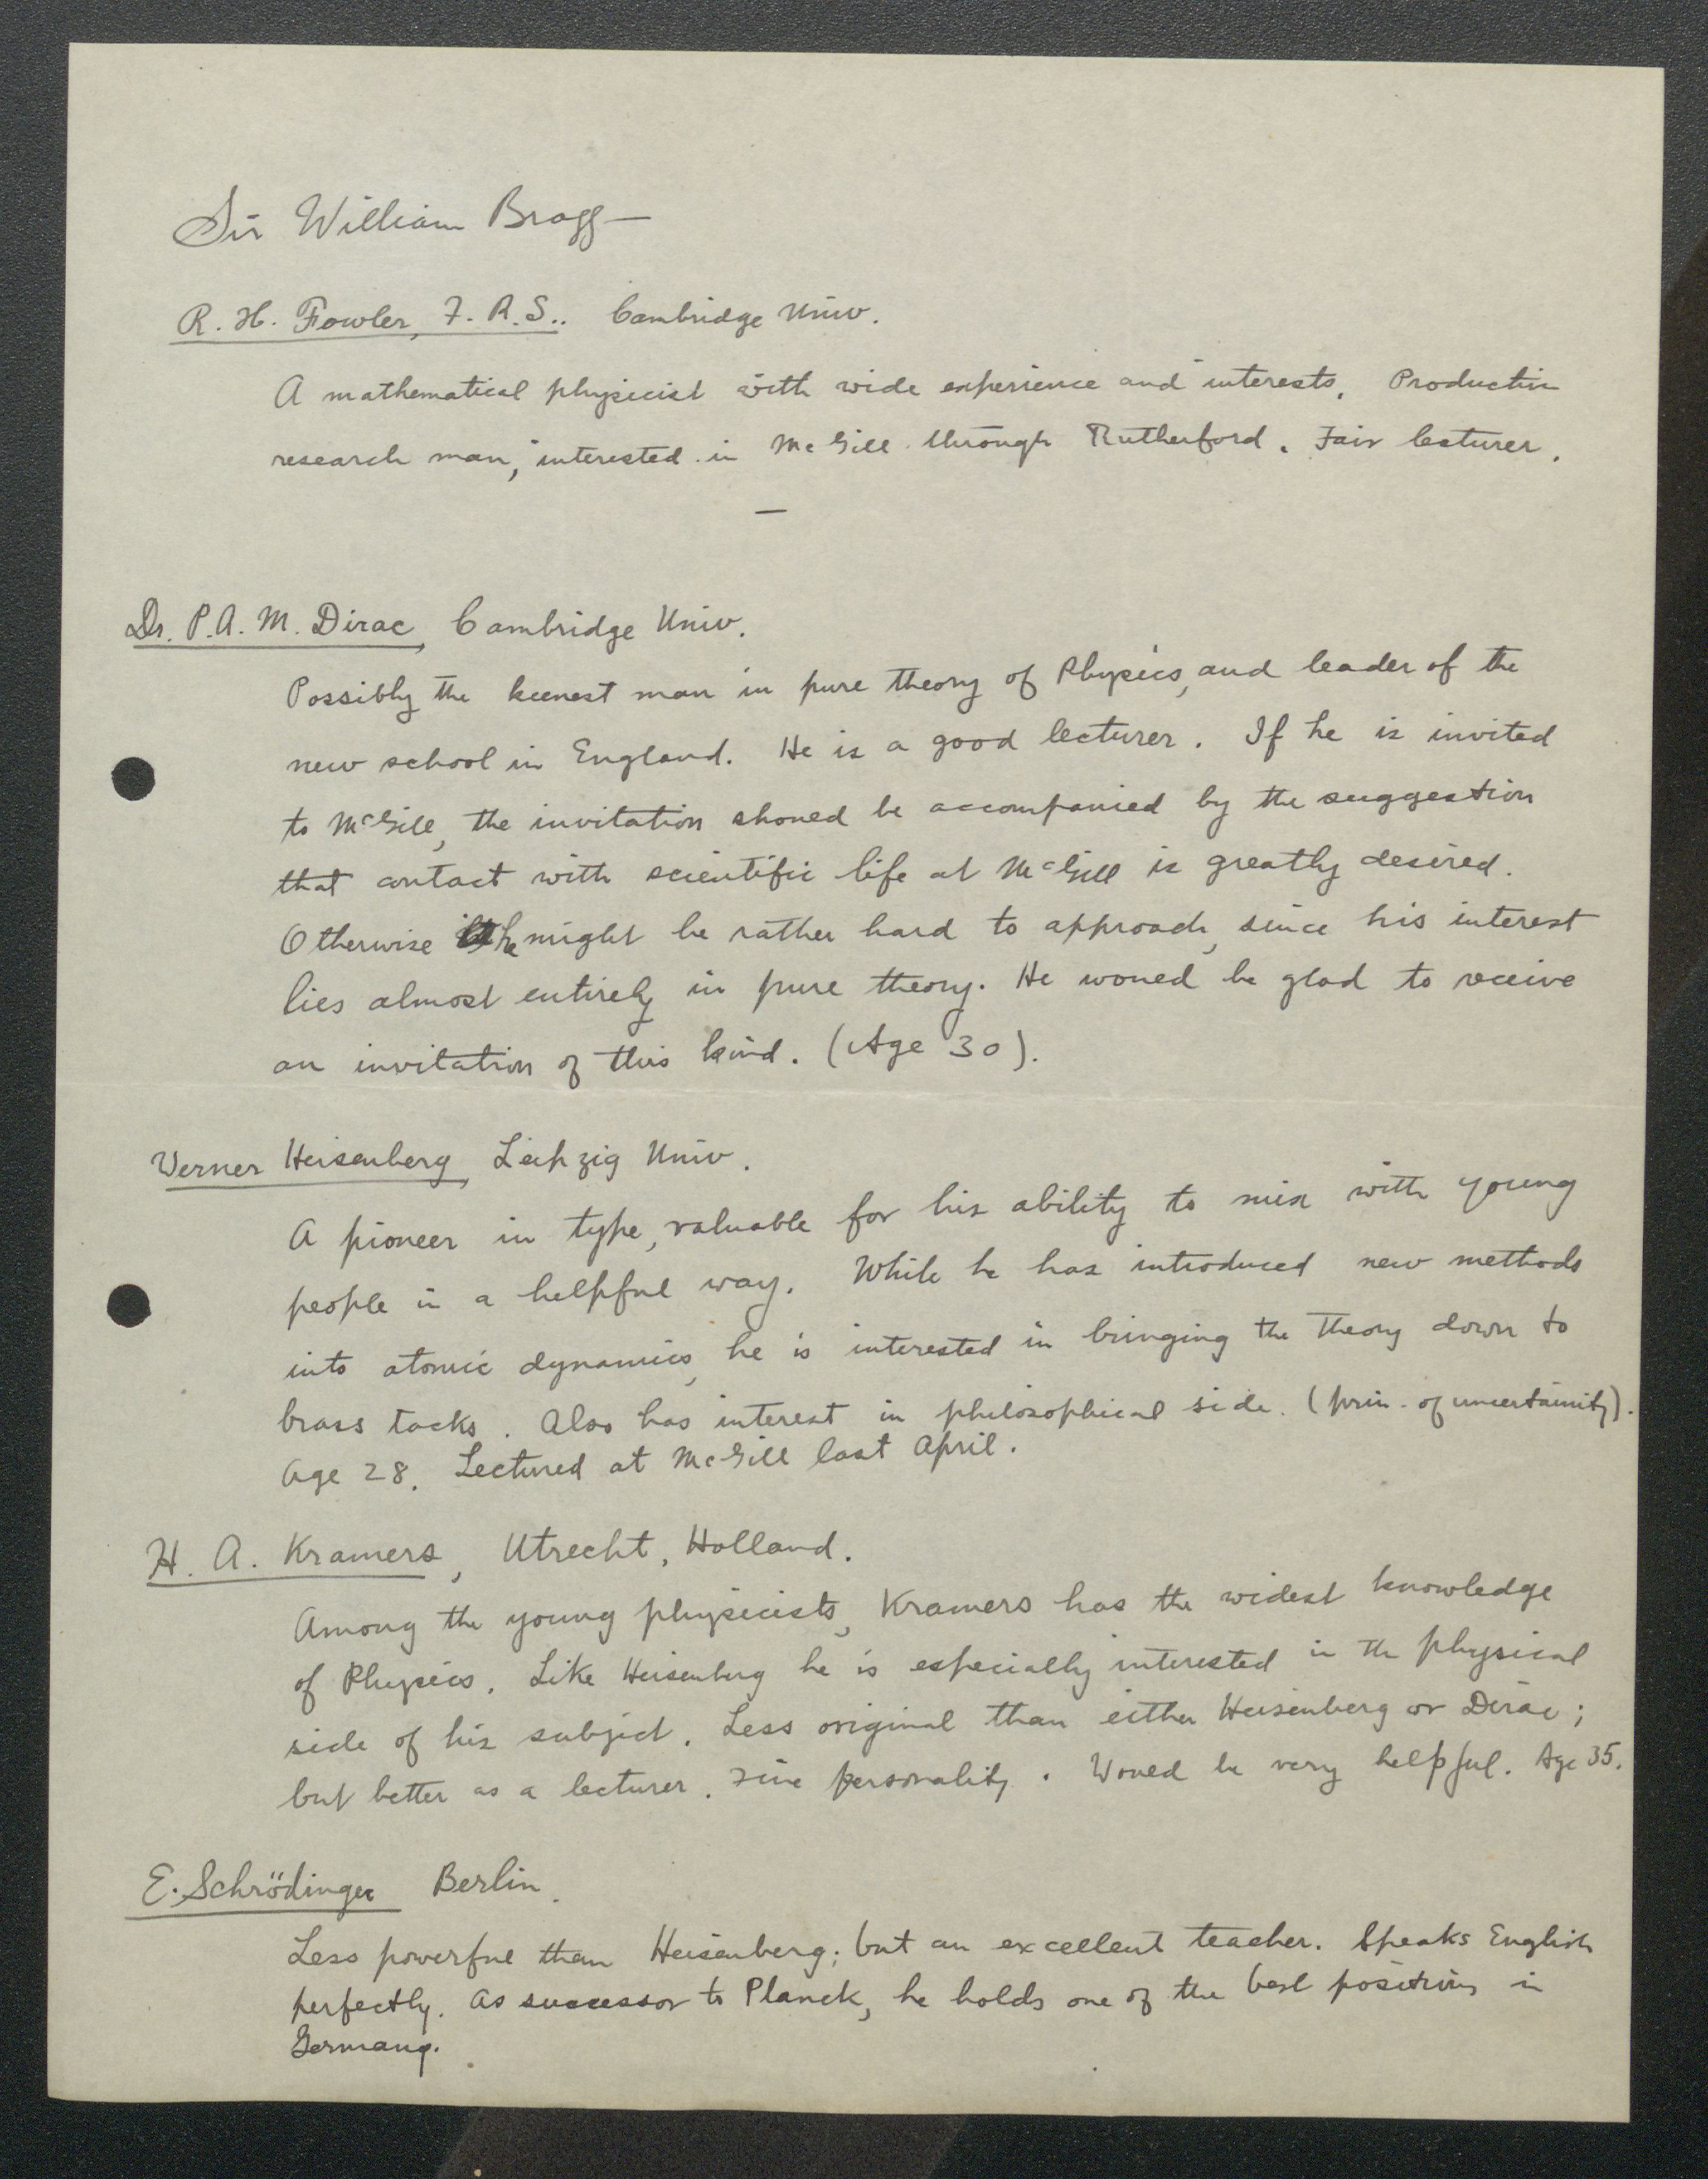 Sir William Bragg —
R. H. Fowler, F. R. S.. Cambridge Univ.
A mathematical physicist with wide experience and interests. Productive
research man, interested in McGill through Rutherford. Fair lecturer.
—
Dr. P. A. M. Dirac, Cambridge Univ.
Possibly the keenest man in pure theory of Physics, and leader of the
new school in England. He is a good lecturer. If he is invited
to McGill, the invitation should be accompanied by the suggestion
that contact with scientific life at McGill is greatly desired.
Otherwise he might be rather hard to approach, since his interest
lies almost entirely in pure theory. He would be glad to receive
an invitation of this kind. (Age 30).
Werner Heisenberg, Leipzig Univ.
A pioneer in type, valuable for his ability to mix with young
people in a helpful way. While he has introduced new methods
into atomic dynamics, he is interested in bringing the theory down to
brass tacks. Also has interest in philosophical side. (prin. of uncertainity).
Age 28. Lectured at McGill last April.
H. A. Kramers, Utrecht, Holland.
Among the young physicists, Kramers has the widest knowledge
of Physics. Like Heisenberg he is especially interested in the physical
side of his subject. Less original than either Heisenberg or Dirac;
but better as a lecturer. Fine personality. Would be very helpful. Age 35.
E. Schrödinger Berlin.
Less powerful than Heisenberg; but an excellent teacher. Speaks English
perfectly. As successor to Planck, he holds one of the best positions in
Germany.